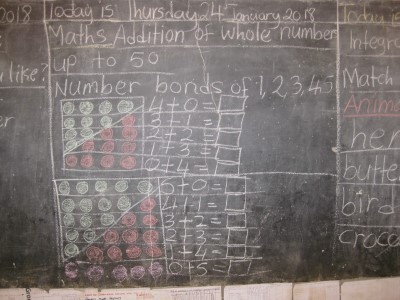 2018
Today is Thursday 24th January 2018
Maths Addition of whole number
up to 50
Number bonds of 1,2,3,4,5
4+0=
3+1=
2+2=
1+3=
0+4=
5+0=
4+1=
3+2=
2+3=
1+4=
0+5=
like?
er
Today is
Integra
Match
Anima
her
butte
bird
croco